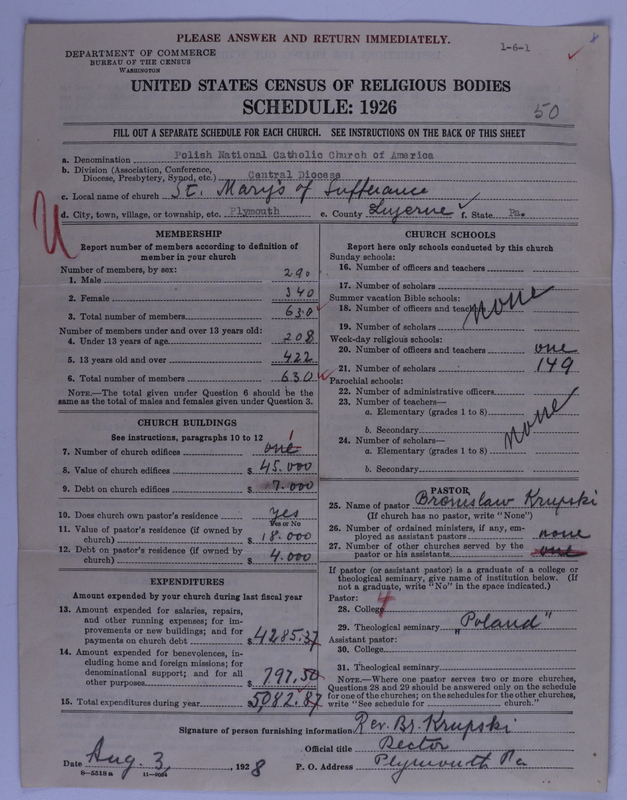 PLEASE ANSWER AND RETURN IMMEDIATELY.
1-6-1
8
DEPARTMENT OF COMMERCE
BUREAU OF THE CENSUS
WASHINGTON
UNITED STATES CENSUS OF RELIGIOUS BODIES
SCHEDULE: 1926
50
FILL OUT A SEPARATE SCHEDULE FOR EACH CHURCH. SEE INSTRUCTIONS ON THE BACK OF THIS SHEET
a. Denomination Polish National Catholic Church of America
b. Division (Association, Conference,
Diocese, Presbytery, Synod, etc.) Central Diocese
c. Local name of church St. Mary's of Sufferance
d. City, town, village, or township, etc. Plymouth e. County Luzerne f. State Pa.
MEMBERSHIP
Report number of members according to definition of
member in your church
Number of members, by sex:
1. Male 290
2. Female 340
3. Total number of members 630
Number of members under and over 13 years old:
4. Under 13 years of age 208
5. 13 years old and over 422
6. Total number of members 630
NOTE.—The total given under Question 6 should be the
same as the total of males and females given under Question 3.
CHURCH BUILDINGS
See instructions, paragraphs 10 to 12
7. Number of church edifices one 1
8. Value of church edifices $ 45.000
9. Debt on church edifices $ 7.000
10. Does church own pastor's residence yes
Yes or No
11. Value of pastor's residence (if owned by
church) $ 18.000
12. Debt on pastor's residence (if owned by
church) $ 4.000
EXPENDITURES
Amount expended by your church during last fiscal year
13. Amount expended for salaries, repairs,
and other running expenses; for im-
provements or new buildings; and for
payments on church debt $ 4285.37
14. Amount expended for benevolences, in-
cluding home and foreign missions; for
denominational support; and for all
other purposes $ 797.50
15. Total expenditures during year $ 5082.87
CHURCH SCHOOLS
Report here only schools conducted by this church
Sunday schools:
16. Number of officers and teachers
17. Number of scholars
Summer vacation Bible schools:
18. Number of officers and teachers none
19. Number of scholars
Week-day religious schools:
20. Number of officers and teachers one
21. Number of scholars 149
Parochial schools:
22. Number of administrative officers
23. Number of teachers—
a. Elementary (grades 1 to 8)
b. Secondary none
24. Number of scholars—
a. Elementary (grades 1 to 8)
b. Secondary
PASTOR
25. Name of pastor Bronislaw Krupski
(If church has no pastor, write "None")
26. Number of ordained ministers, if any, em-
ployed as assistant pastors none
27. Number of other churches served by the
pastor or his assistants one
If pastor (or assistant pastor) is a graduate of a college or
theological seminary, give name of institution below. (If
not a graduate, write "No" in the space indicated.)
Pastor: 4
28. College
29. Theological seminary "Poland"
Assistant pastor:
30. College
31. Theological seminary
NOTE.—Where one pastor serves two or more churches,
Questions 28 and 29 should be answered only on the schedule
for one of the churches; on the schedules for the other churches,
write "See schedule for church."
Signature of person furnishing information Rev. Br. Krupski
Official title Rector
Date Aug. 3, 1928 P. O. Address Plymouth Pa
8—5518a 11—9034